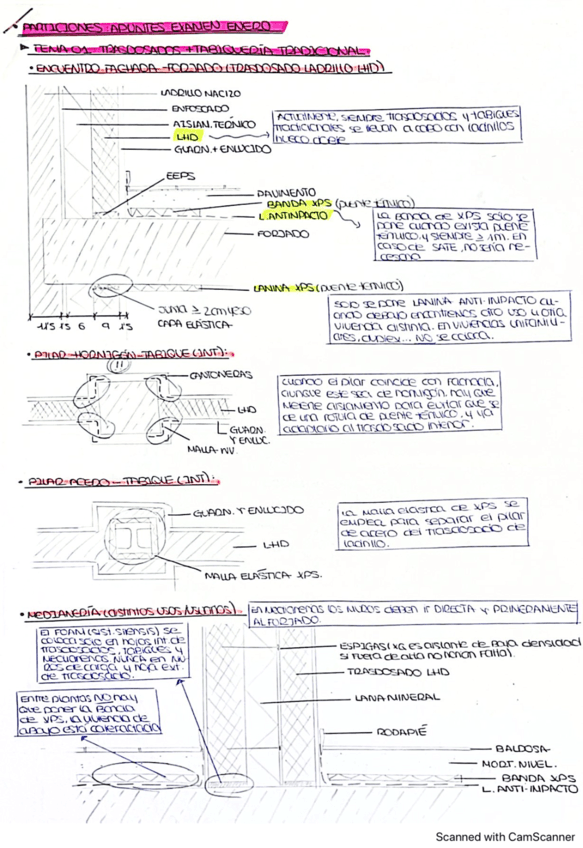 • PARTICIONES APUNTES EXAMEN ENERO
► TEMA 01. TRASDOSADOS + TABIQUERÍA TRADICIONAL
• ENCUENTRO FACHADA-FORJADO (TRASDOSADO LADRILLO LHD)
LADRILLO MACIZO
ENFOSCADO
AISLAM. TÉRMICO
LHD
GUARN. + ENLUCIDO
ACTUALMENTE, SIEMPRE TRASDOSADOS Y TABIQUES
TRADICIONALES SE LLEVAN A CABO CON LADRILLOS
HUECO DOBLE
EEPS
PAVIMENTO
BANDA XPS (puente térmico)
L. ANTIIMPACTO
FORJADO
LA BANDA DE XPS SOLO SE
PONE CUANDO EXISTA PUENTE
TÉRMICO, Y SIEMPRE ≥ 1m. EN
CASO DE SATE, NO SERÍA NE-
CESARIO
LÁMINA XPS (puente térmico)
JUNTA ≥ 2cm YESO
CAPA ELÁSTICA
11'5 1'5 6 9 1'5
SOLO SE PONE LÁMINA ANTI-IMPACTO CU-
ANDO DEBAJO ENCONTREMOS OTRO USO U OTRA
VIVIENDA DISTINTA. EN VIVIENDAS UNIFAMILI-
ARES, DUPLEX... NO SE COLOCA.
• PILAR HORMIGÓN-TABIQUE (INT):
CANTONERAS
LHD
GUARN.
Y ENLUC.
MALLA
CUANDO EL PILAR COINCIDE CON FACHADA,
AUNQUE ESTE SEA DE HORMIGÓN, HAY QUE
METERLE AISLAMIENTO PARA EVITAR QUE SE
DE UNA ROTURA DE PUENTE TÉRMICO, Y YA
ADAPTARLO AL TRASDOSADO INTERIOR.
• PILAR ACERO - TABIQUE (INT):
GUARN. Y ENLUCIDO
LHD
MALLA ELÁSTICA XPS.
LA MALLA ELÁSTICA DE XPS SE
EMPLEA PARA SEPARAR EL PILAR
DE ACERO DEL TRASDOSADO DE
LADRILLO.
• MEDIANERÍA (DISTINTOS USOS/USUARIOS)
EN MEDIANERAS LOS MUROS DEBEN IR DIRECTA Y PRIMERAMENTE
AL FORJADO.
EL FOAM (SIST. SILENSIS) SE
COLOCA SOLO EN HOJAS INT. DE
TRASDOSADOS, TABIQUES Y
MEDIANERAS. NUNCA EN MU-
ROS DE CARGA Y HOJA EXT.
DE TRASDOSADO.
ESPIGAS (XQ ES AISLANTE DE BAJA DENSIDAD
SI FUERA DE ALTA NO HARÍAN FALTA).
TRASDOSADO LHD
LANA MINERAL
ENTRE PLANTAS NO HAY
QUE PONER LA BANDA
DE XPS, LA VIVIENDA DE
ABAJO ESTÁ CALEFACTADA
RODAPIÉ
BALDOSA
MORT. NIVEL.
BANDA XPS
L. ANTI-IMPACTO
Scanned with CamScanner